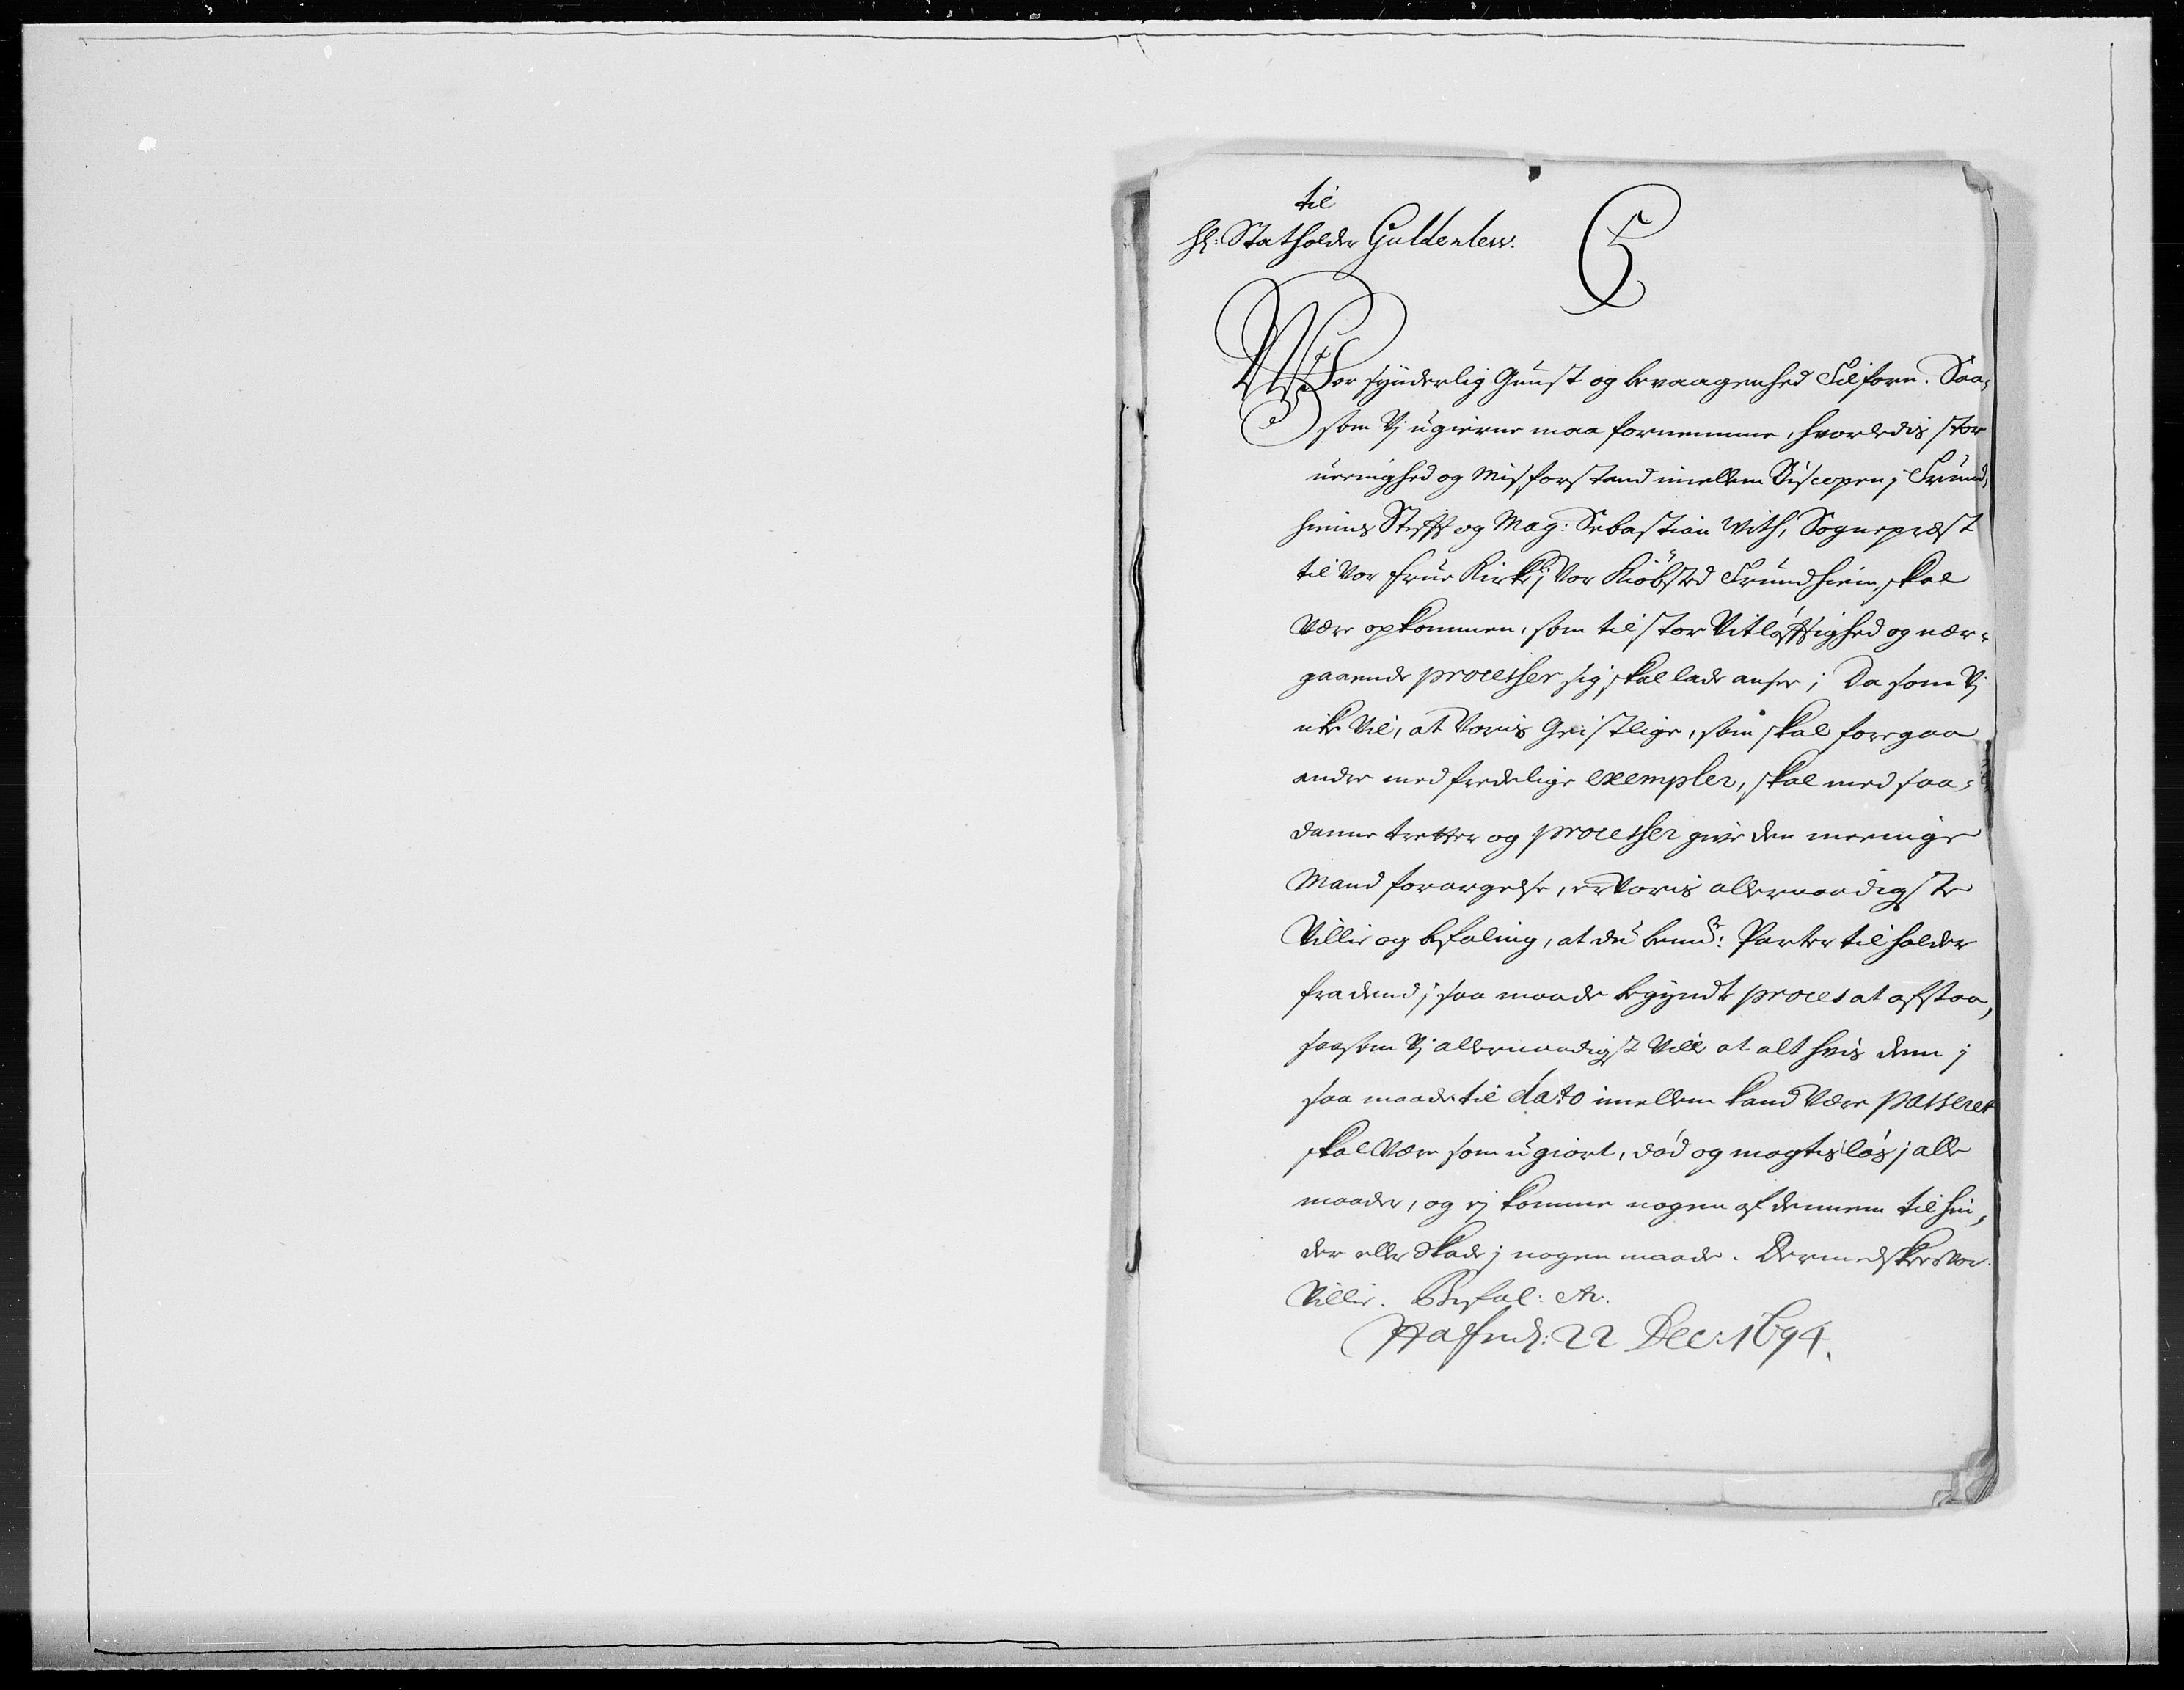 til
Hr: Statholder Guldenlew.
C5
Vor synderlig Gunst og bevaagenhed Tilforn. Saa-
som Vj ugierne maa fornemme, hvorledis stor
ueenighed og Misforstand imellem Biscopen j Trund-
hiems Stifft og Mag: Sebastian With, Sognepræst
til Vor frue Kirke j Vor Kiöbsted Trundhiem, skal
Være opkommen, som til stor Vitløfftighed og nær-
gaaende processer sig skal lade ansee; Da som Vj
icke Vil, at Voris Geistlige, som skal foregaa
andre med fredelige exempler, skal med saa-
danne tretter og processer give den meenige
Mand forargelse, er Voris allernaadigste
Villie og befaling, at du bemte: Parter tilholder
fra dend j saa maade begyndte proces at afstaa,
saasom Vj allernaadigst Ville at alt hvis dem j
saa maade til dato imellem kand Være passeret
skal Være som ugiort, död og magteslös j alle
maader, og ej komme nogen af dennem til hin-
der eller Skade j nogen maade. Dermed skeer Vor
Villie. Befal: etc.
Haffniæ: 22 Dec: 1694.